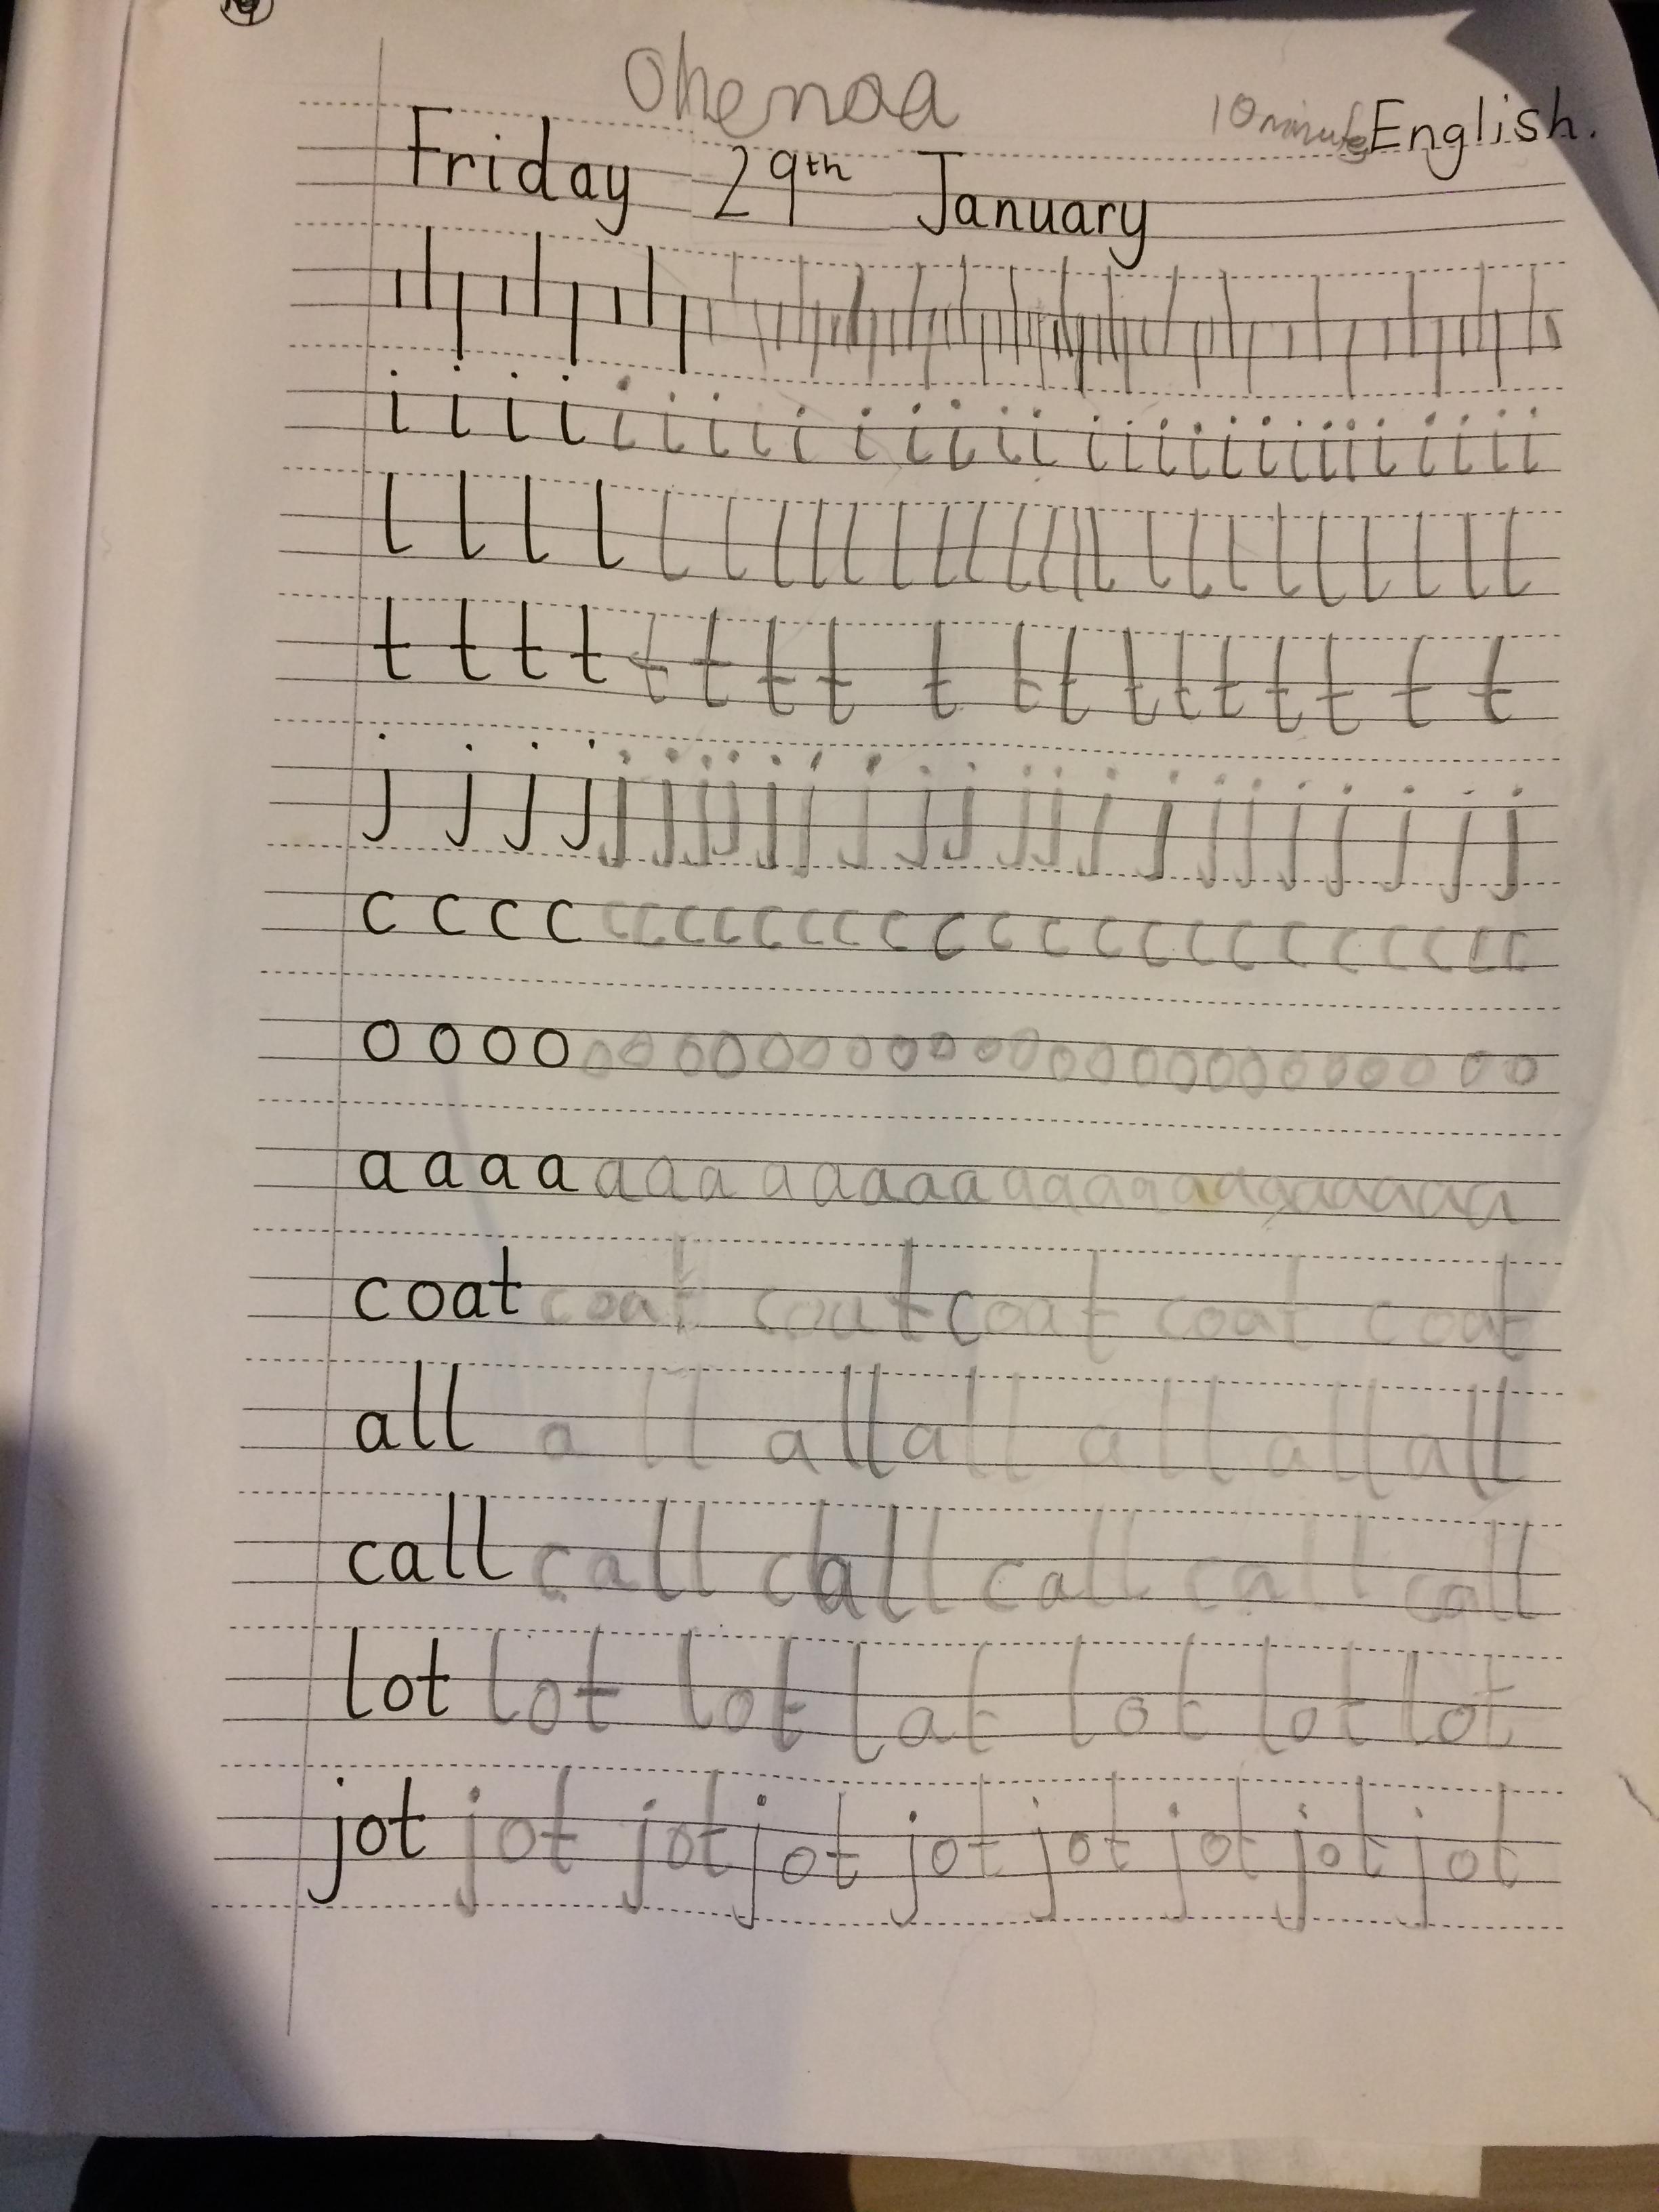 Ohenaa
10 minute English.
Friday 29th January
i i i i i i i i i i i i i i i i i i i i i i i i i i i i
l l l l l l l l l l l l l l l l l l l l l l l l l
t t t t t t t t t t t t t t t t t t
j j j j j j j j j j j j j j j j j j j j j j j j
c c c c c c c c c c c c c c c c c c c c c c c c
o o o o o o o o o o o o o o o o o o o o o o o o o
a a a a a a a a a a a a a a a a a a a a a a a
coat coat coat coat coat coat
all all all all all all all
call call call call call call
lot lot lot lat lot lot lot
jot jot jot jot jot jot jot jot jot